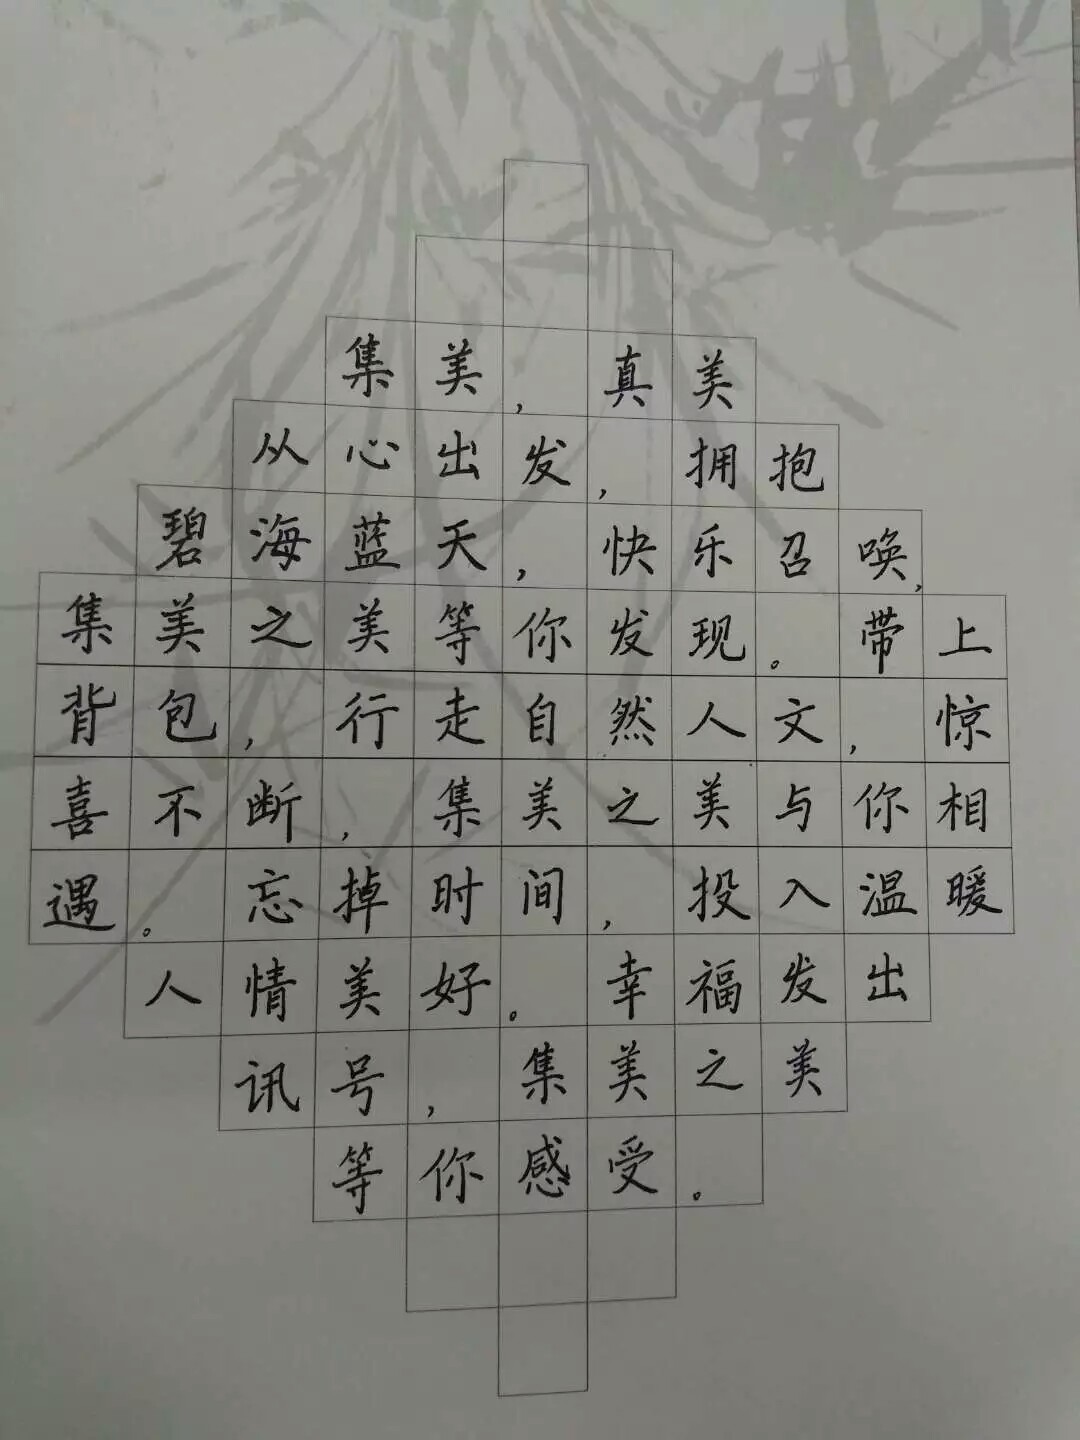 集美，真美
从心出发，拥抱
碧海蓝天，快乐召唤，
集美之美等你发现。带上
背包，行走自然人文，惊
喜不断，集美之美与你相
遇。忘掉时间，投入温暖
人情美好。幸福发出
讯号，集美之美
等你感受。